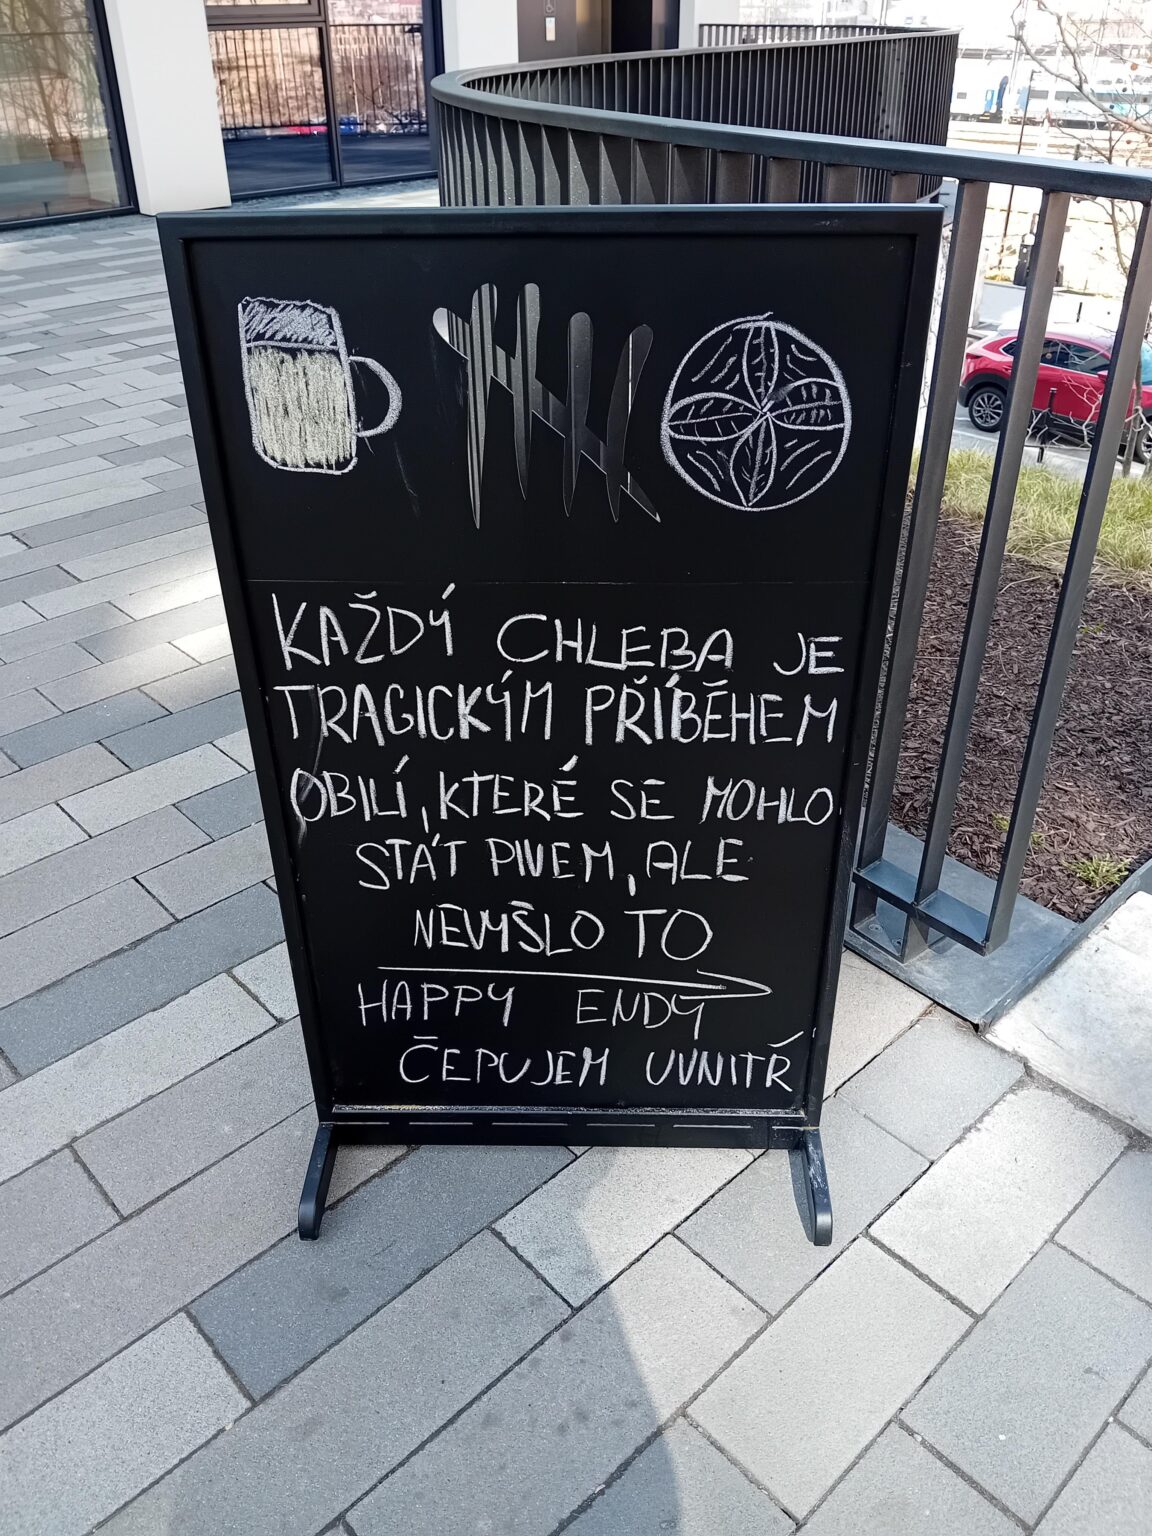 KAŽDÝ CHLEBA JE
TRAGICKÝM PŘÍBĚHEM
OBILÍ, KTERÉ SE MOHLO
STÁT PIVEM, ALE
NEVYŠLO TO
HAPPY ENDY
ČEPUJEM UVNITŘ